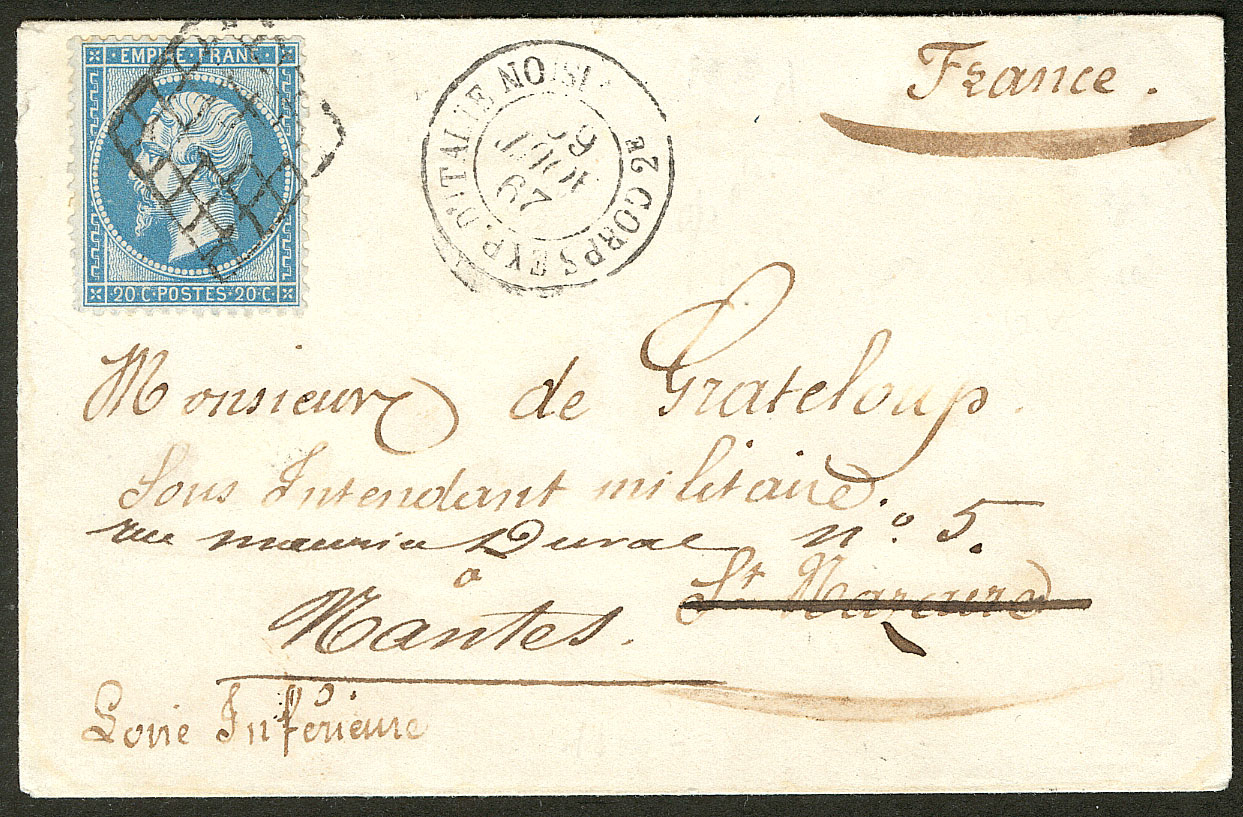 EMPIRE·FRANC·
20·C·POSTES·20·C·
CORPS EXP. D'ITALIE
67
France.
Monsieur de Grateloup.
Sous Intendant militaire.
rue maurice Duval n.º 5.
à
St Nazaire
Nantes.
Loire Inférieure